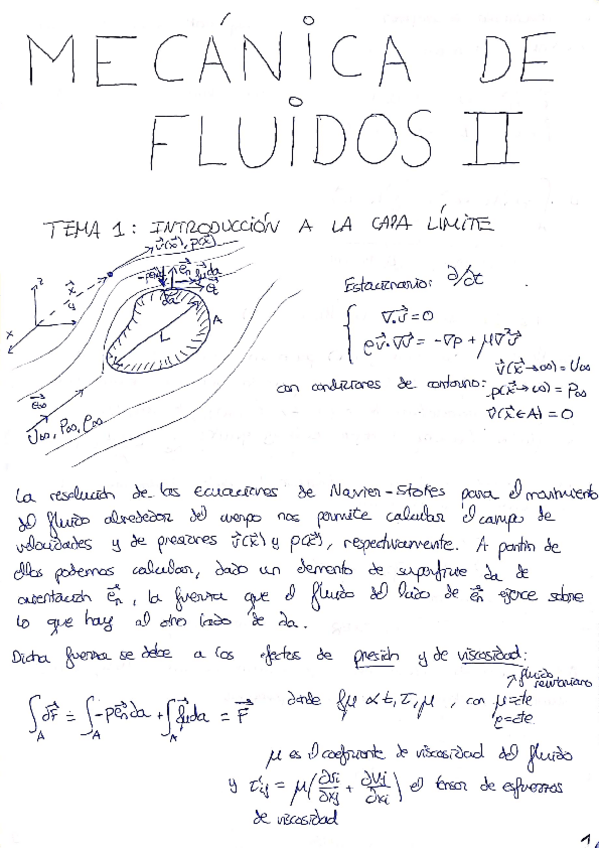 MECÁNICA DE
FLUIDOS II
TEMA 1: INTRODUCCIÓN A LA CAPA LÍMITE
v⃗(x⃗), p(x⃗)
z
x⃗
y
x
-pe⃗n
e⃗n
f⃗μda
e⃗t
da
A
L
e⃗∞
U∞, P∞, ρ∞
Estacionario: ∂/∂t
∇·v⃗ = 0
ρv⃗·∇v⃗ = -∇p + μ∇²v⃗
con condiciones de contorno: v⃗(x⃗→∞) = U∞
p(x⃗→∞) = P∞
v⃗(x⃗∈A) = 0
La resolución de las ecuaciones de Navier-Stokes para el movimiento
del fluido alrededor del cuerpo nos permite calcular el campo de
velocidades y de presiones v⃗(x⃗) y p(x⃗), respectivamente. A partir de
ellos podemos calcular, dado un elemento de superficie da de
orientación e⃗n, la fuerza que el fluido del lado de e⃗n ejerce sobre
lo que hay al otro lado de da.
Dicha fuerza se debe a los efectos de presión y de viscosidad:
∫A dF⃗ = ∫A -pe⃗n da + ∫A f⃗μ da = F⃗ donde fμ α t, τ, μ, con μ=cte
ρ=cte
fluido newtoniano
μ es el coeficiente de viscosidad del fluido
y τ'ij = μ(∂vi/∂xj + ∂vj/∂xi) el tensor de esfuerzos
de viscosidad
1